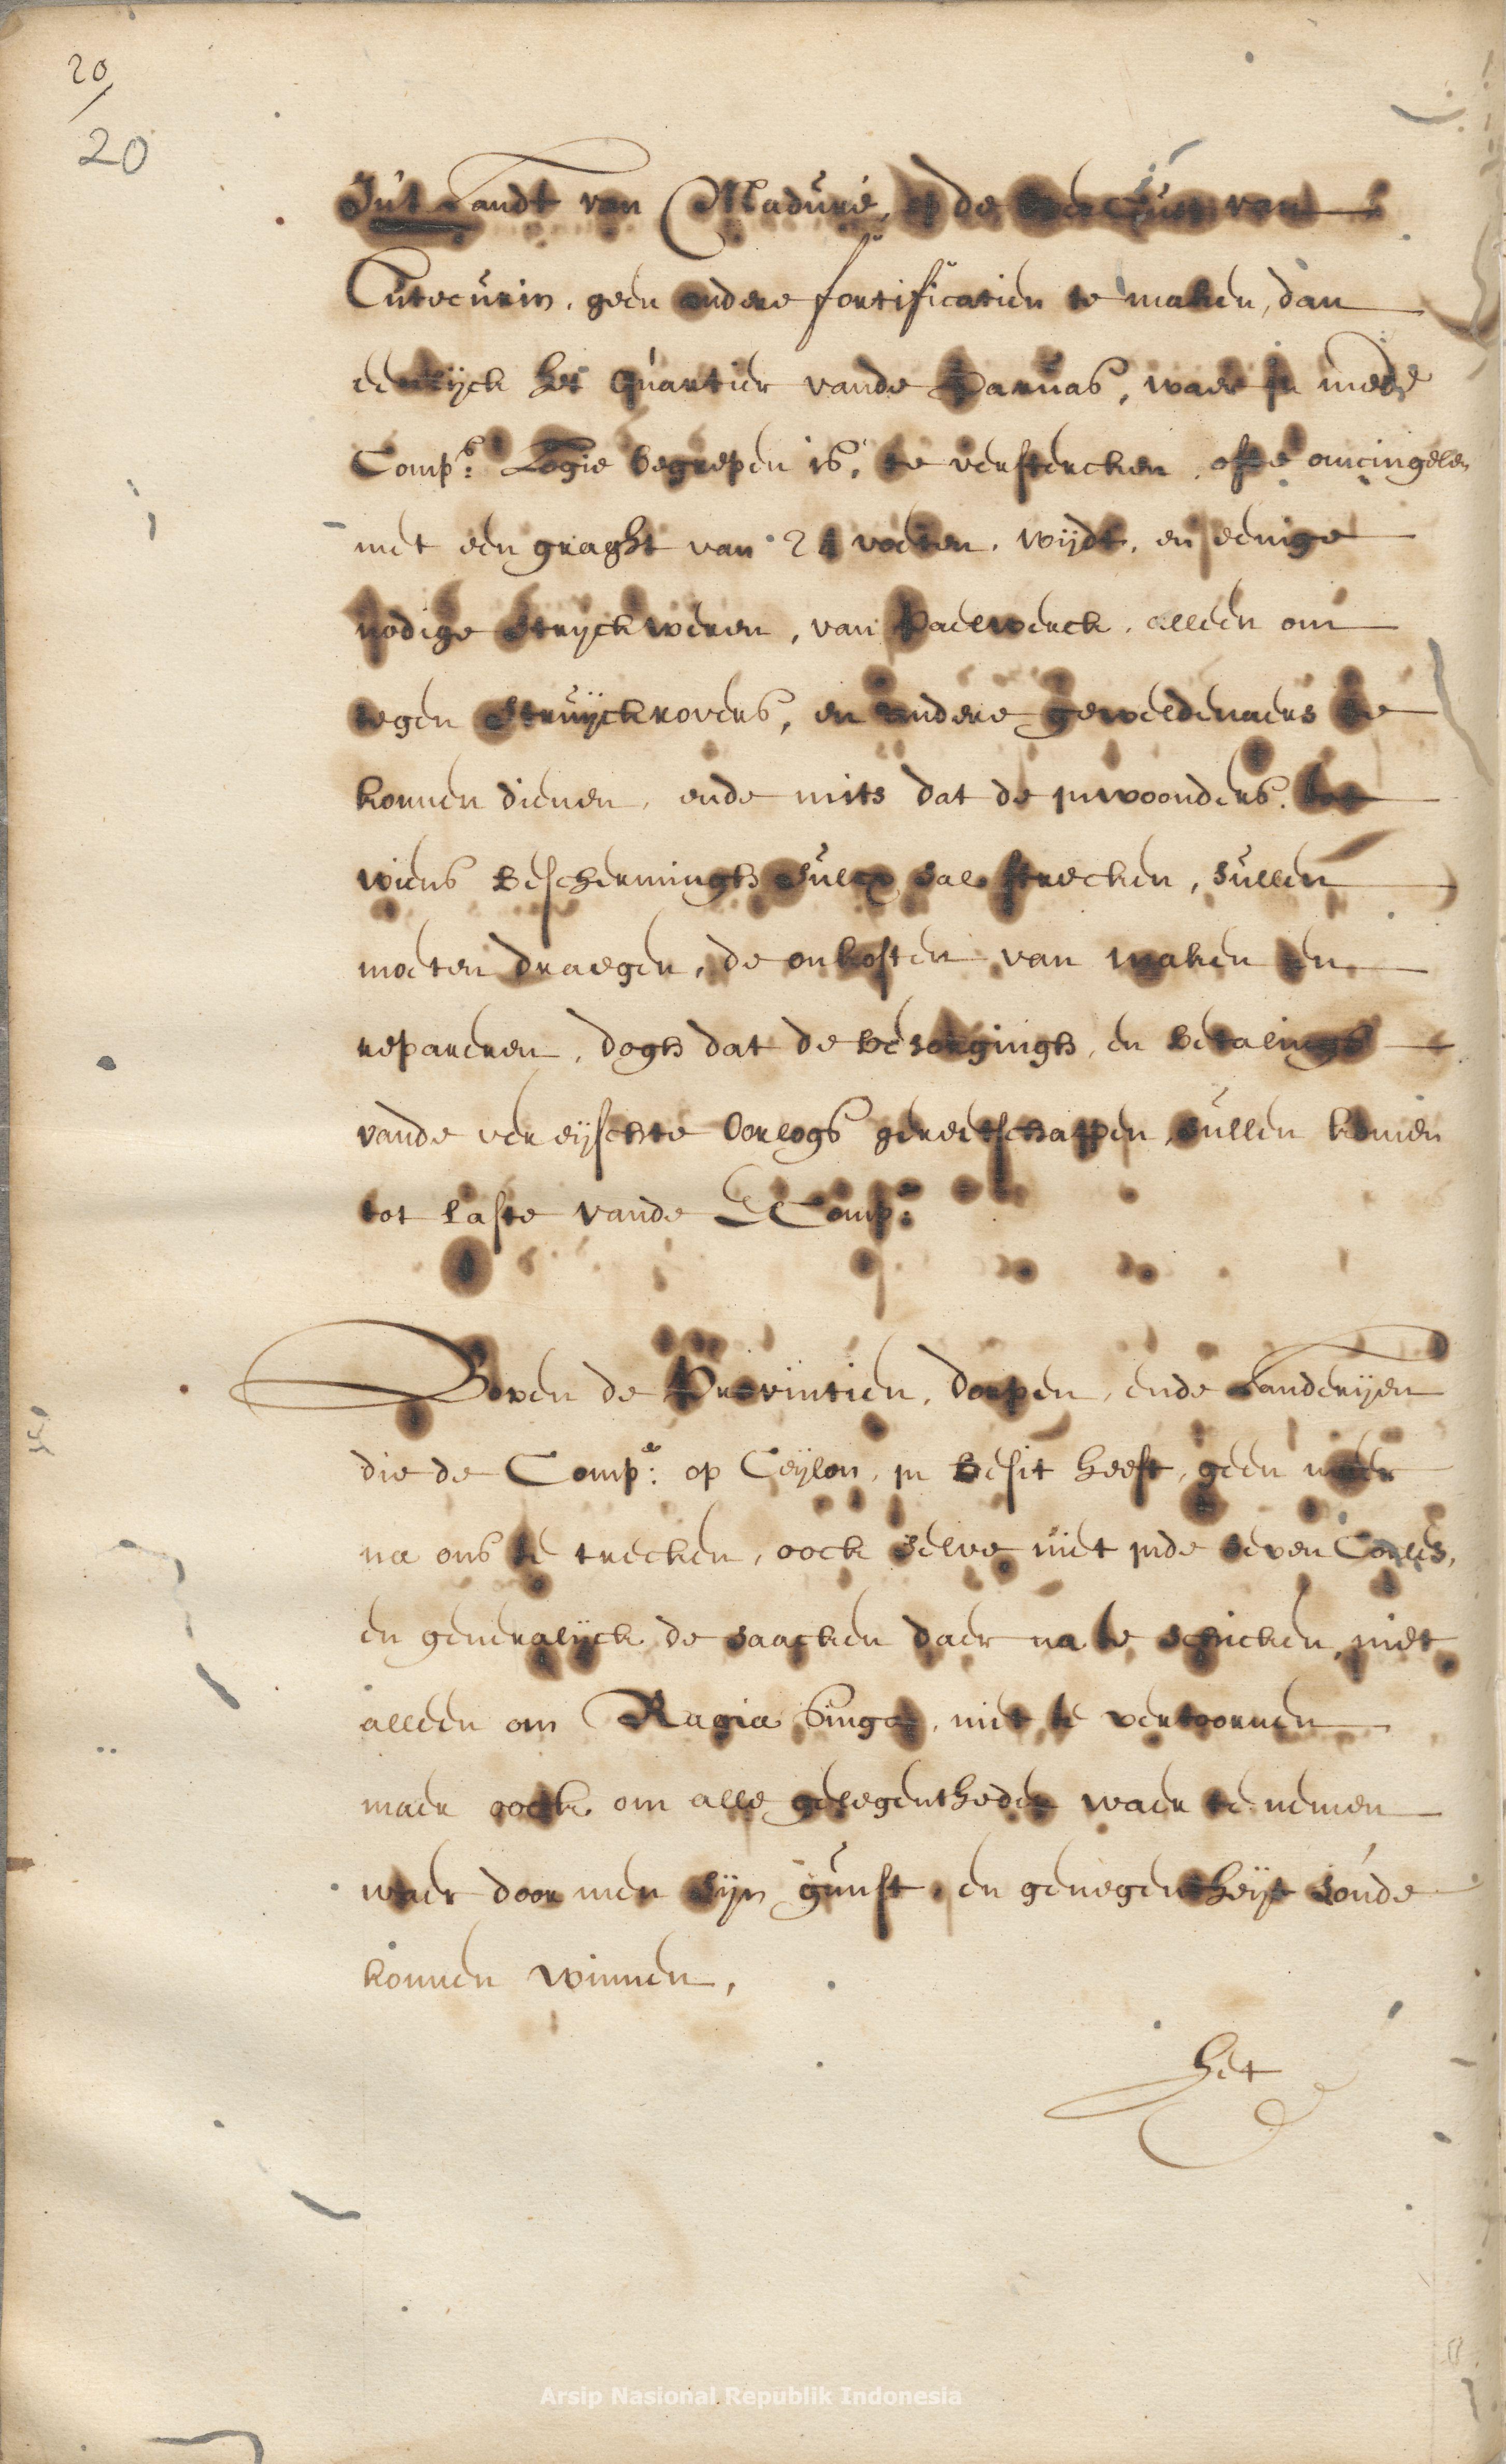 20/
20
Int Landt van Maduré, op de van
Tutecurin, geen andere fortificatien te maken, dan
eenlijck het quartier vande Paruas, waer in mede
Comps: Logie begrepen is, te verstercken, ofte omcingelen
met een graght van 24 voeten, wijdt, en eenige
nodige strijckweren, van Paelwerck, alleen om
tegen struijckrovers, en andere geweldenaers te
konnen dienen, ende mits dat de inwoonders, tot
wiens bescherminghs sulcx sal strecken, sullen
moeten draegen, de onkosten van maken en
repareren, dogh dat de besorgingh, en betalingh
vande vereijschte Oorlogs gereetschappen, sullen komen
tot laste vande E Compe:
Boven de Provintien, dorpen, ende Landerijen
die de Compe: op Ceijlon, in besit heeft, geen meer
na ons te trecken, oock selve niet inde seven Corles,
en generalijck de saacken daer na te schicken, niet
alleen om Ragia Singa, niet te vertoornen
maer oock om alle gelegentheden waer te nemen
waer door men sijn gunst, en genegentheijt soude
konnen winnen,
Het
Arsip Nasional Republik Indonesia